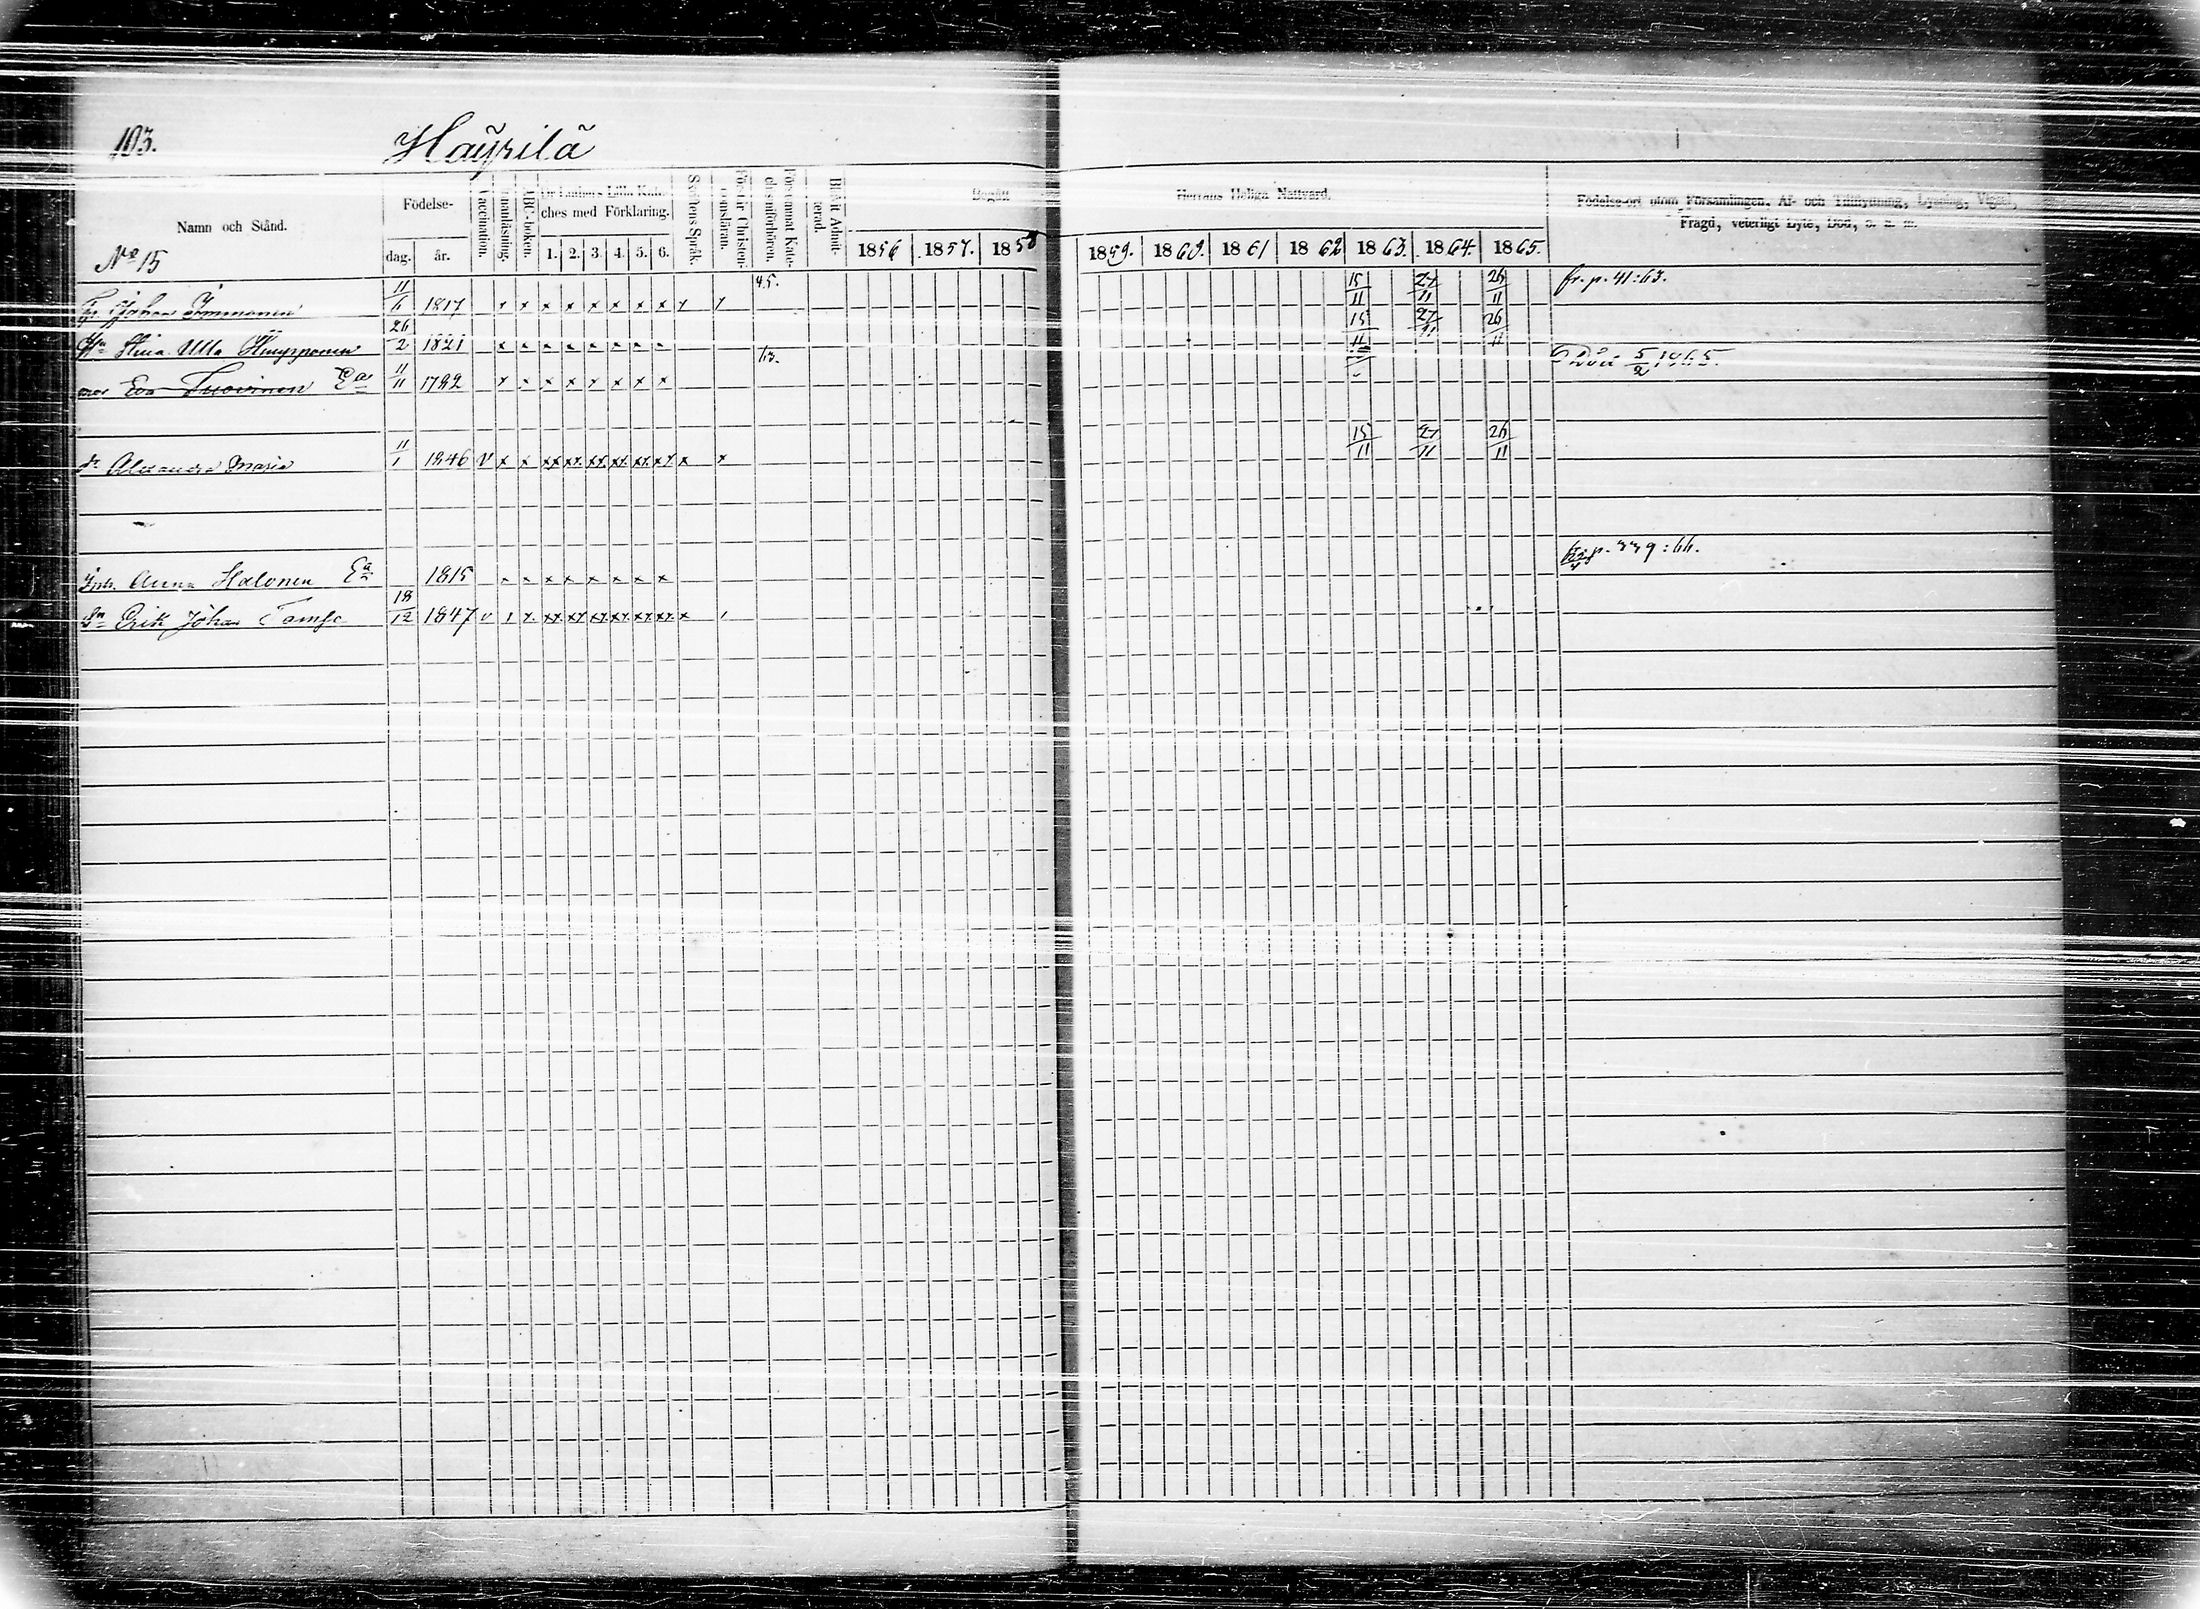 103.
Häyrilä
Namn och Stånd.
No 15
Födelse-
dag. år.
Vaccination.
Innanläsning.
ABC-boken.
Dr Luthers Lilla Kate-
ches med Förklaring.
1. 2. 3. 4. 5. 6.
Skriftens Språk.
Förstår Christen-
domsläran.
Försummat Kate-
chesmiförhören.
Blifvit Admit-
terad.
Begått Herrans Heliga Nattvard.
1856 1857. 1858 1859. 1860. 1861 1862 1863. 1864. 1865.
Födelse-ort utom Församlingen, Af- och Tillflyttning, Lysning, Vigsel,
Frägd, veterligt Lyte, Död, s. n. m.
Johan Immonen 11/6 1817 x x x x x x x x x x 45. 15/11 27/11 26/11 fr. p. 41:63.
Hu Stina Ulla 26/2 1821 x x x x x x x x 15/11 27/11 26/11
mor Eva Tuovinen Ea 11/11 1782 x x x x x x x x 63. Död 5/2 1865.
dr Alexandra Maria 11/1 1846 v x x xx xx xx xx xx xx x x 15/11 27/11 26/11
Inh. Anna Halonen Ea 1815 x x x x x x x x p. 339:66.
Sn Erik Johan 18/12 1847 v x x xx xx xx xx xx xx x